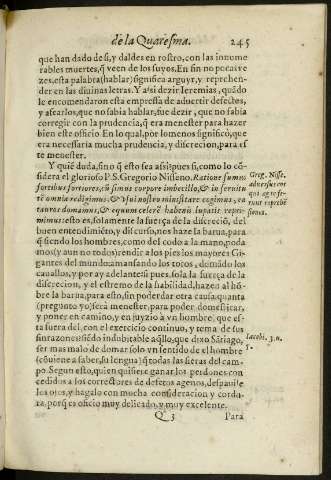 de la Quaresma. 245
que han dado de si, y daldes en rostro, con las innume
rables muertes, q̃ veen de los suyos. En fin no pocas ve
zes, esta palabra (hablar) significa arguyr, y reprehen-
der en las diuinas letras. Y assi dezir Ieremias, quãdo
le encomendaron esta empressa de aduertir defectos,
y afearlos, que no sabia hablar, fue dezir, que no sabia
corregir con la prudencia, q̃ era menester para hazer
bien este officio. En lo qual, por lo menos significó, que
era necessaria mucha prudencia, y discrecion, para es
te menester.
Y quiẽ duda, sino q̃ esto sea assi? pues si, como lo cõ-
sidera el glorioso P. S. Gregorio Nisseno. Ratione sumus
fortibus fortiores, cũ simus corpore imbecillo, & in seruitu
tẽ omnia redigimus, & vsui nostro ministrare cogimus,
tauros domamus, & equum celerẽ habenis
esto es, solamente la fuerça de la discreciõ, del
buen entendimiẽto, y discurso, nos haze la barua, para
q̃ siendo los hombres, como del codo a la mano, poda
mos (y aun no todos) rendir a los pies los mayores Gi
gantes del mundo: amansando los toros, domádo los
cauallos, y por ay adelante: si pues, sola la fuerça de la
discrecion, y el estremo de la sabilidad, hazen al hõ-
bre la barua, para esto, sin poder dar otra causa, quanta
(pregunto yo) será menester, para poder domesticar,
y poner en camino, y en juyzio a vn hombre, que es-
ta fuera del, con el exercicio continuo, y tema de sus
sinrazones: siẽdo indubitable aq̃llo, que dixo Sãtiago,
ser mas malo de domar solo vn sentido de el hombre
(cõuiene a saber, su lengua) q̃ todas las fieras del cam-
po. Segun esto, quien quisiere ganar los perdones con
cedidos a los correctores de defetos agenos, despauile
los ojos, y hagalo con mucha consideracion y corda-
ra, porq̃ es oficio muy delicado, y muy excelente.
Q 3 Para
Greg. Nisse.
aduersus eos
qui
Iacobi. 3. n.